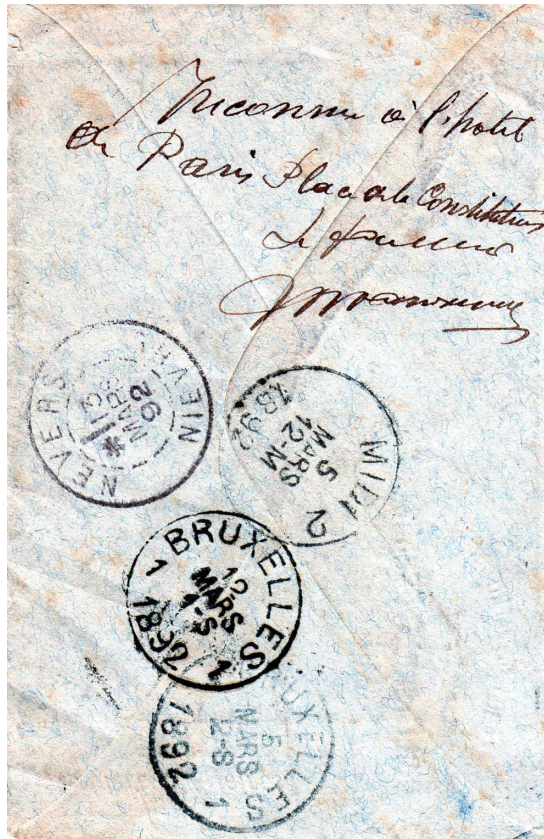 Inconnu à l'hotel
de Paris Place de la Constitution
Le facteur
NEVERS NIEVRE
13
MARS
92
MIDI 2
5
MARS
12-M
1892
BRUXELLES
12
MARS
1-S
1892
1 1
BRUXELLES
5
MARS
2-S
1892
1